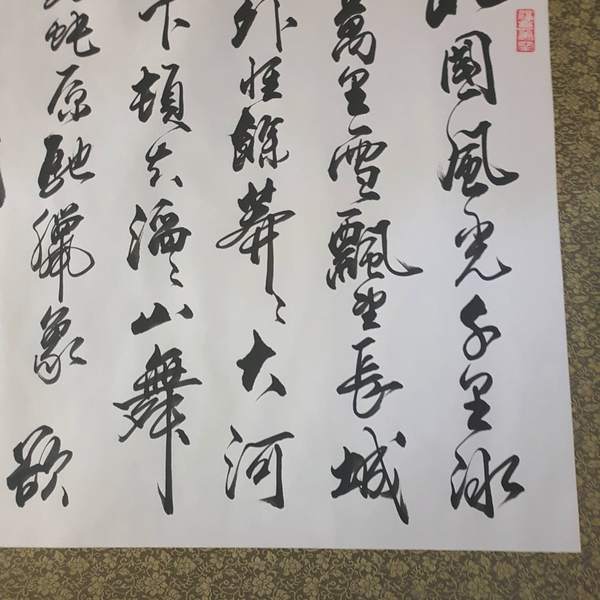 國風光千里冰
萬里雪飄望長城
外惟餘莽々大河
下頓失滔々山舞
蛇原馳臘象欲